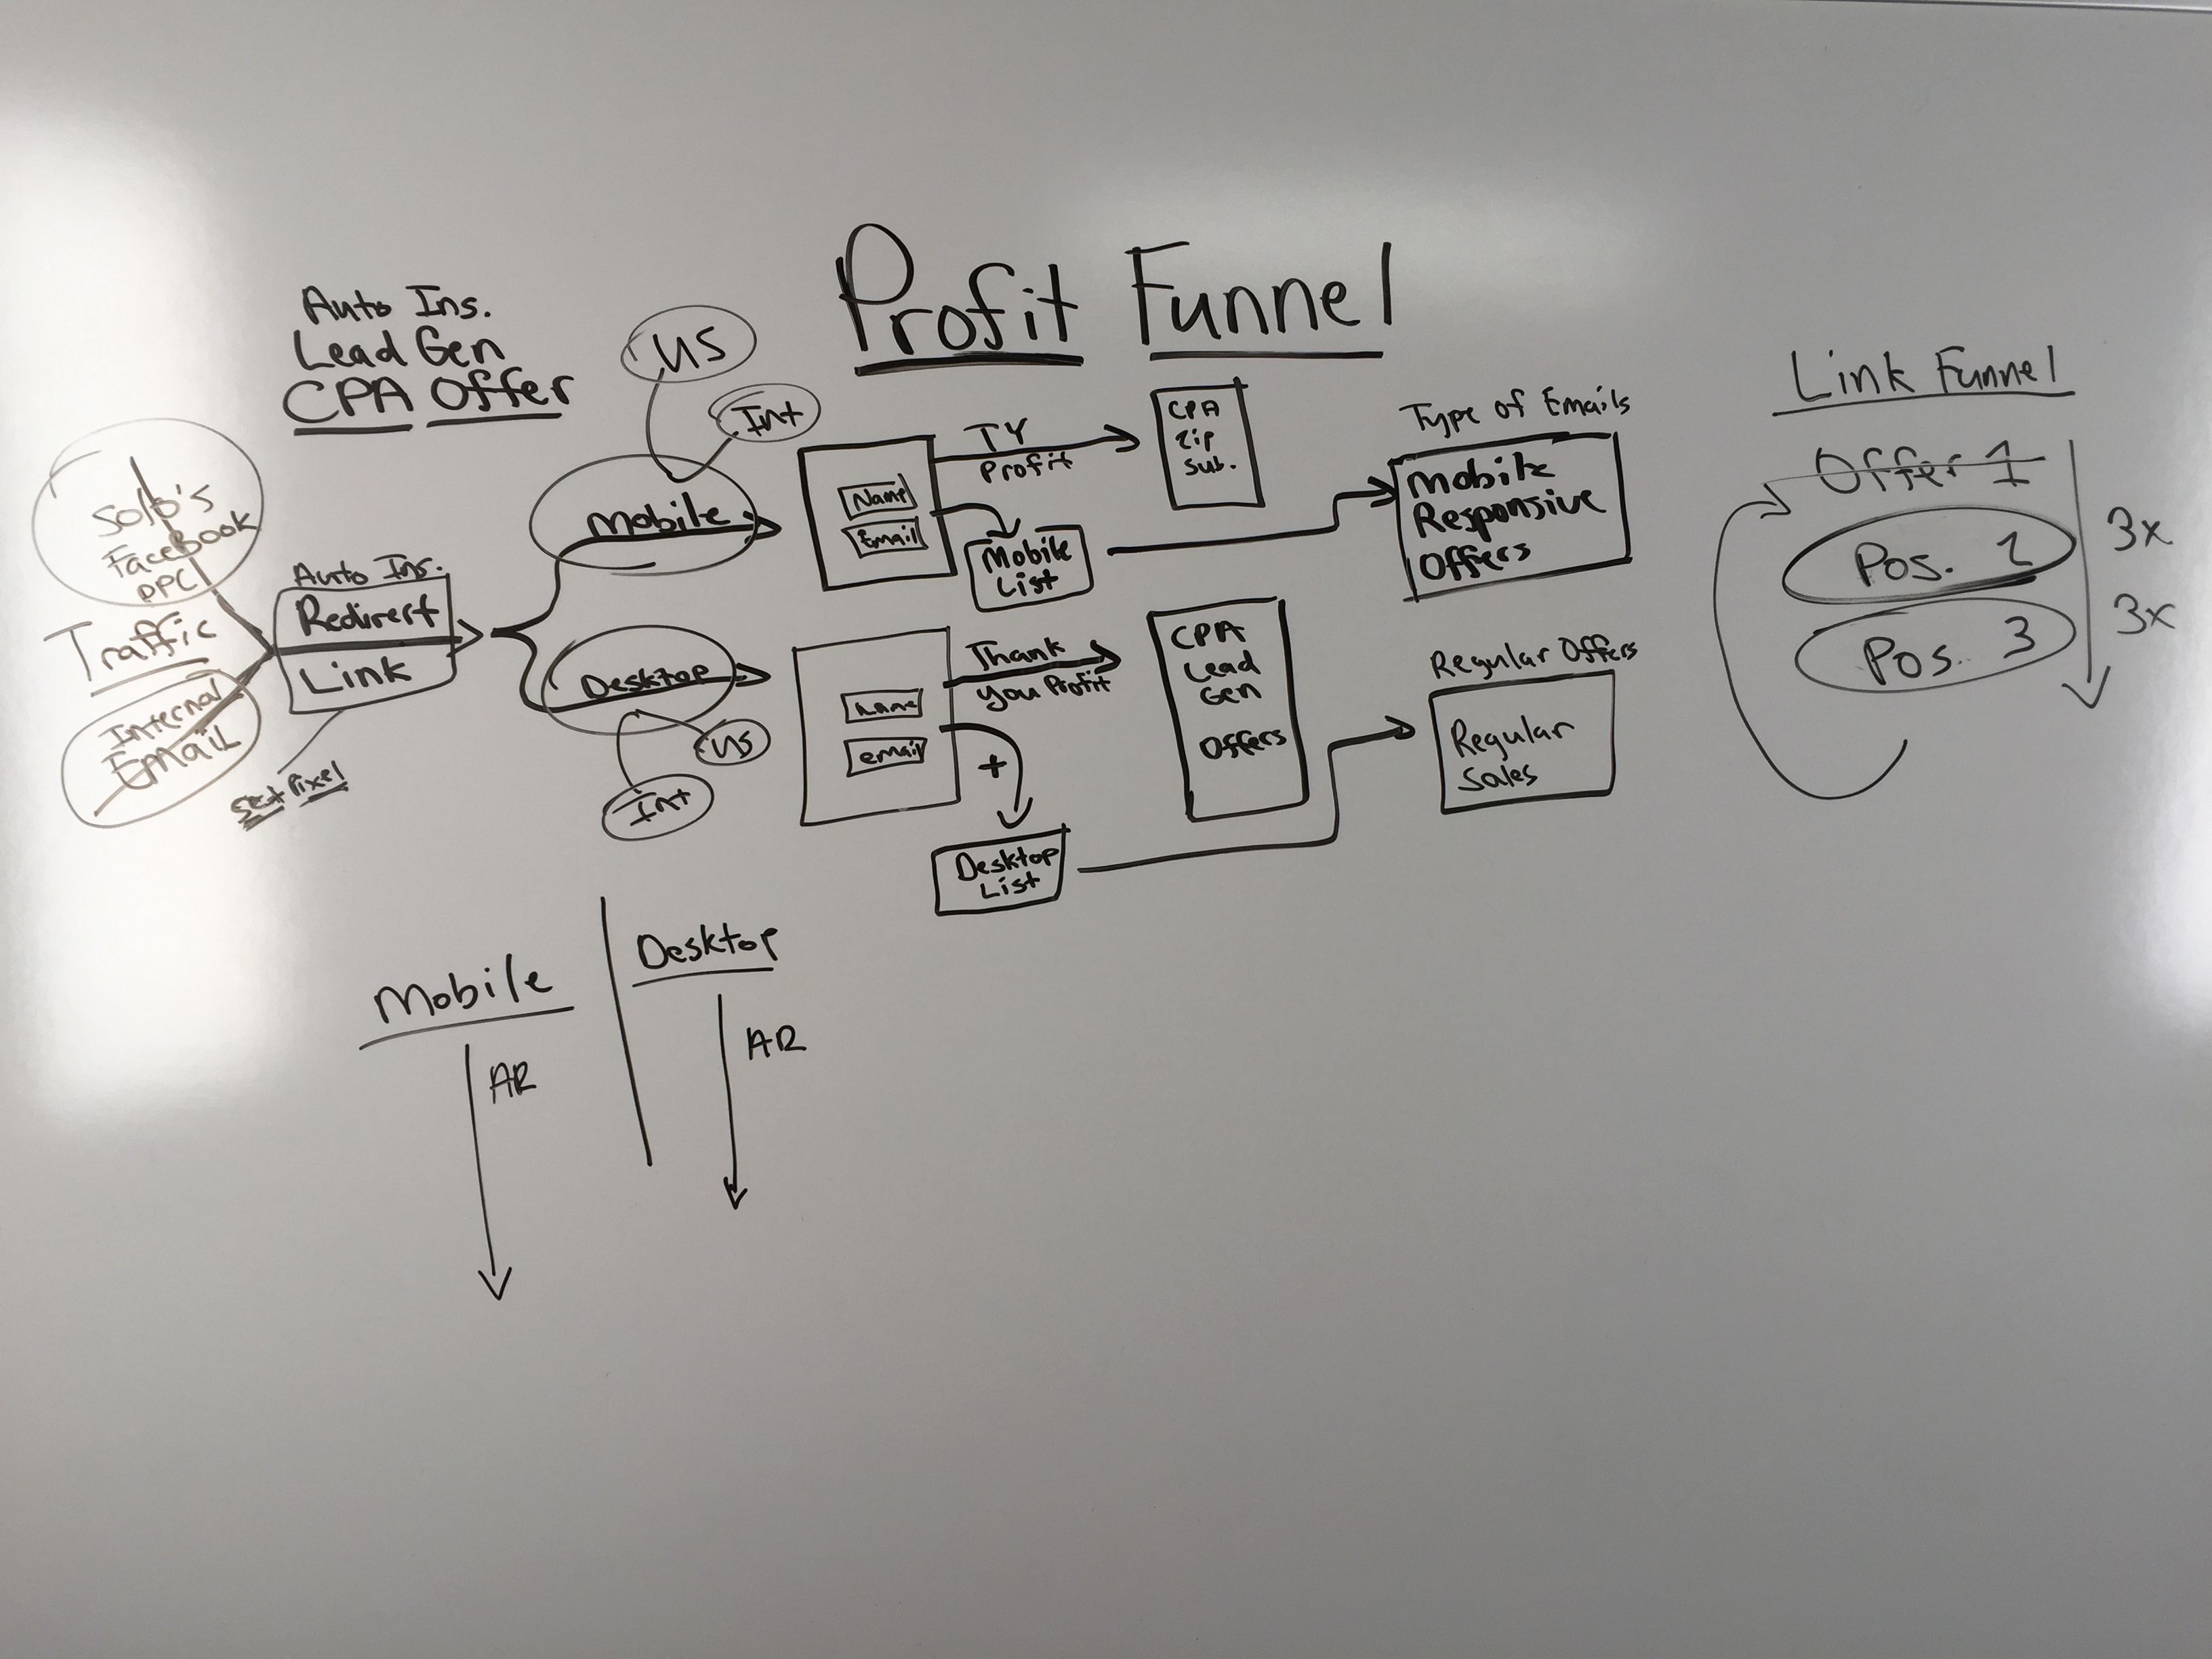 Profit Funnel
Auto Ins.
Lead Gen
CPA Offer
Solo's
Facebook
PPC
Traffic
Internal
Email
Auto Ins.
Redirect
Link
Set Pixel
US
Int
Mobile
Desktop
US
Int
Name
Email
TY
Profit
CPA
Zip
Sub.
Mobile
List
Type of Emails
Mobile
Responsive
Offers
name
email
Thank
you Profit
+
CPA
Lead
Gen
Offers
Desktop
List
Regular Offers
Regular
Sales
Link Funnel
Offer 1
Pos. 2
Pos. 3
3x
3x
Mobile
AR
Desktop
AR